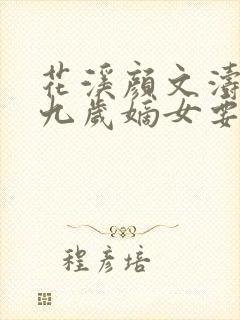 花溪顏文濤
九歲嫡女要
程彥培